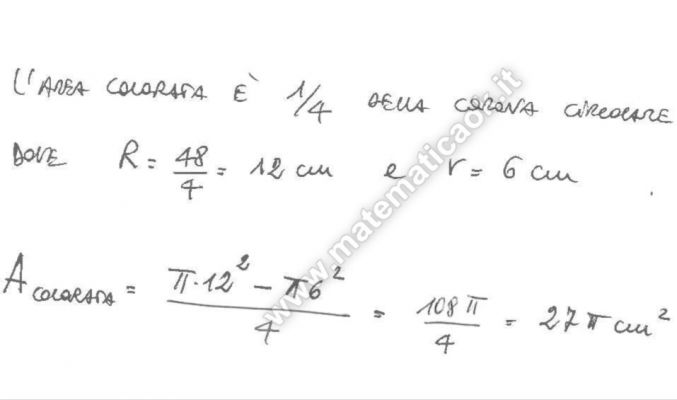 L'AREA COLORATA È 1/4 DELLA CORONA CIRCOLARE
DOVE R = 48/4 = 12 cm e r = 6 cm .
A COLORATA = (π·12² - π6²)/4 = 108π/4 = 27π cm²
www.matematicaok.it